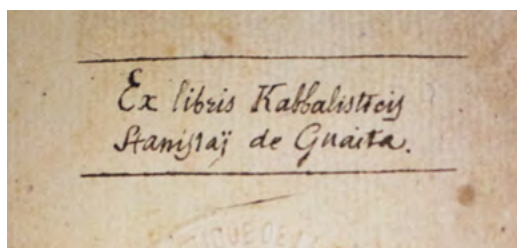 Ex libris Kabbalisticis
Stanislaï de Guaita.